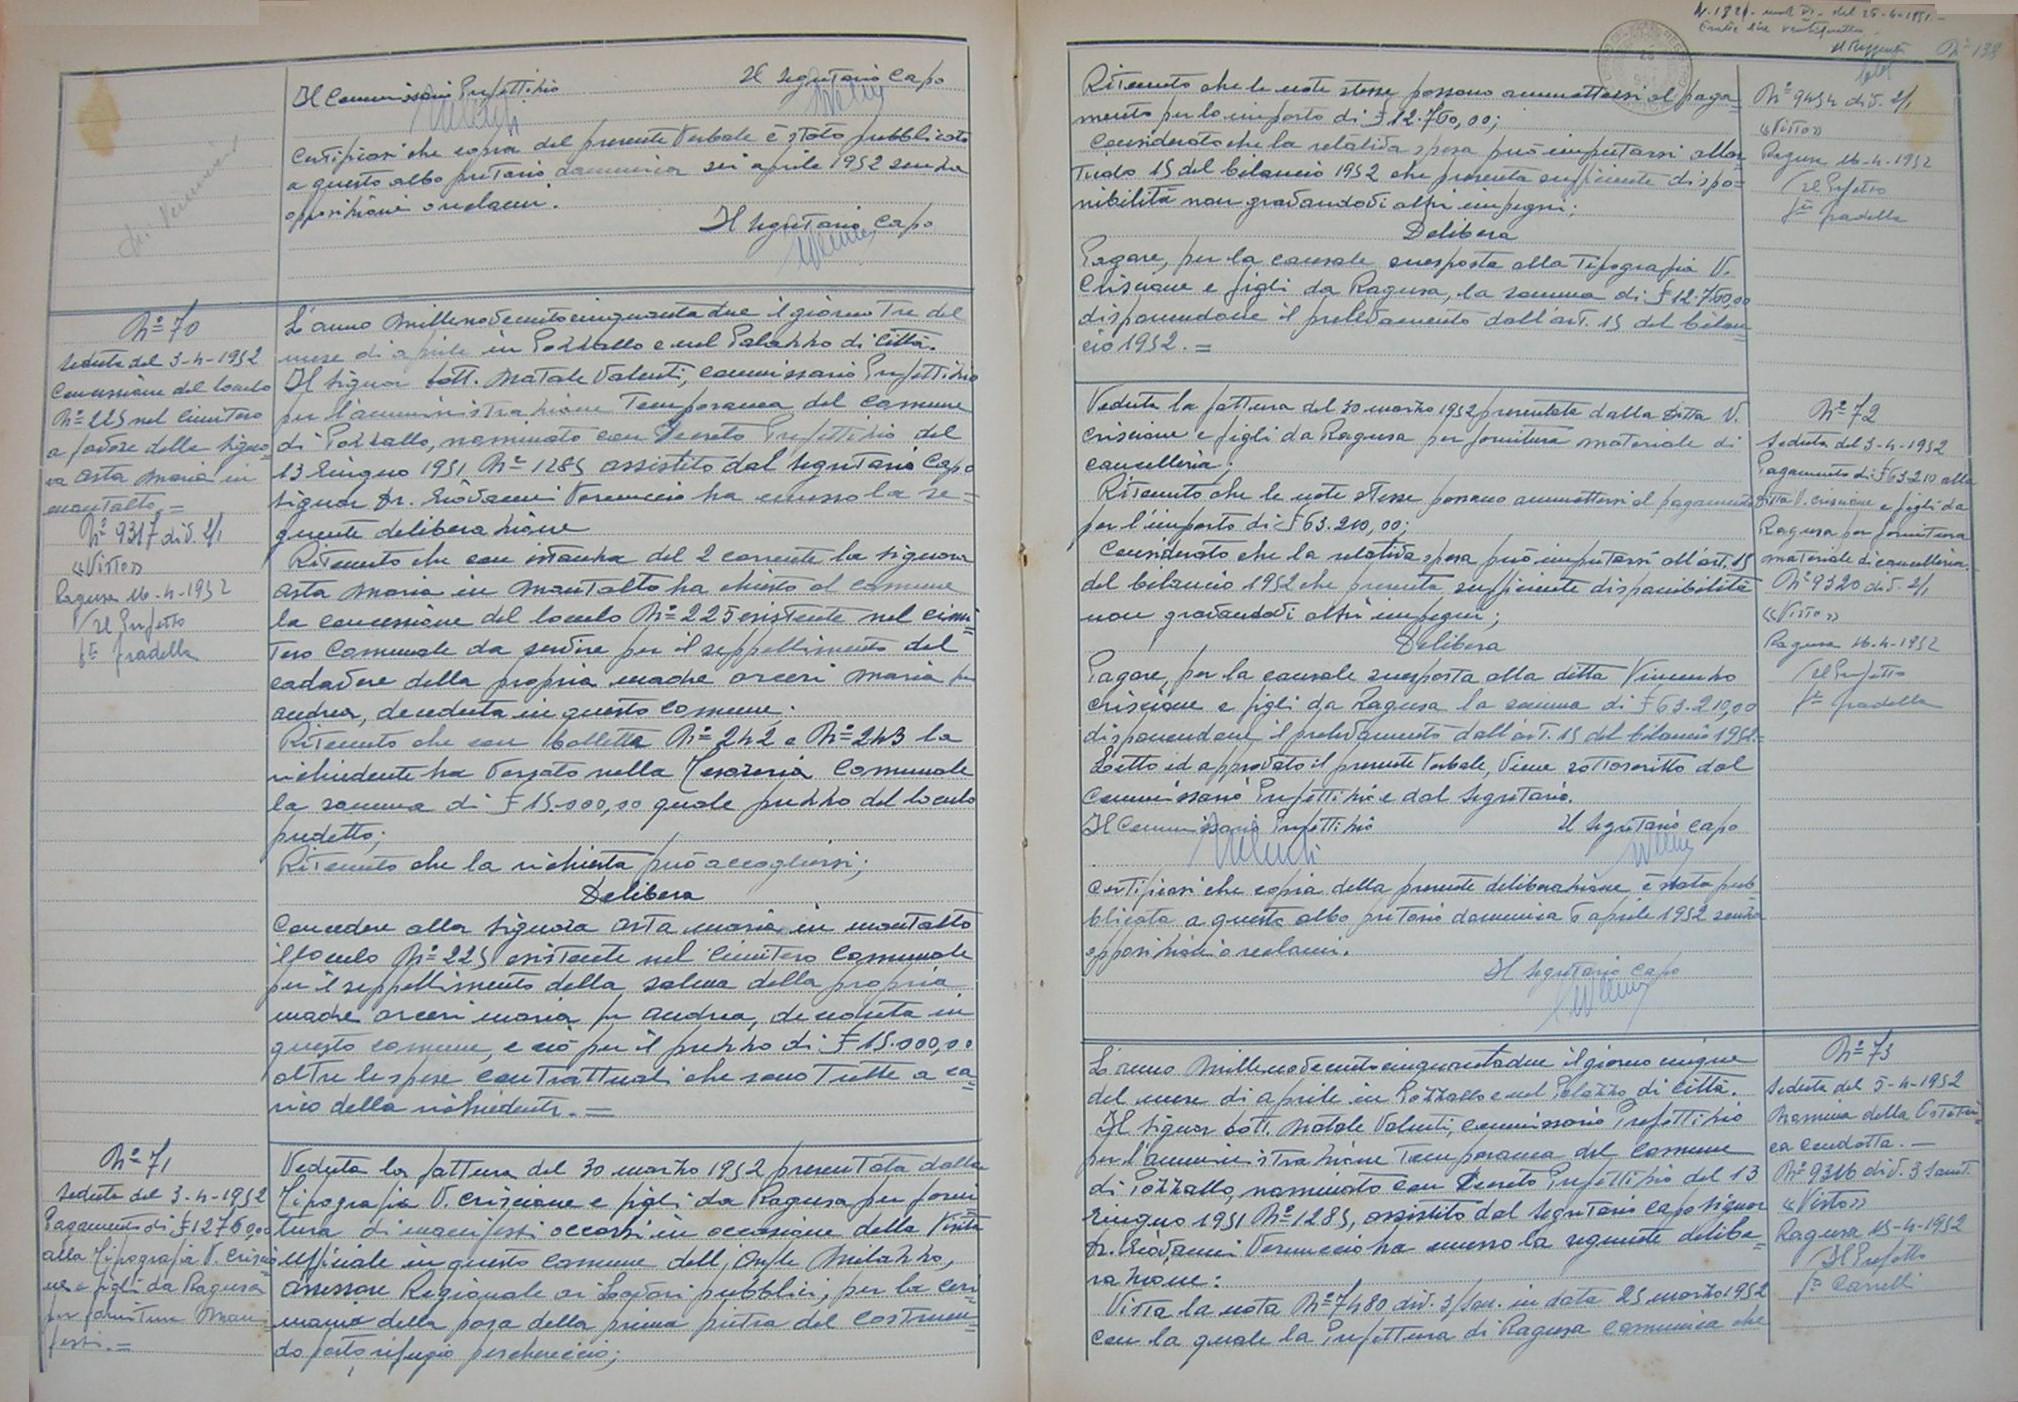 Il Commissario Prefettizio
Il Segretario Capo
Certificasi che copia del presente Verbale è stato pubblicato
a questo albo pretorio domenica sei aprile 1952 senza
opposizioni o reclami.
Il Segretario Capo
Nº 70
Seduta del 3-4-1952
Concessione del loculo
Nº 225 nel Cimitero
a favore della Signo-
ra Asta Maria in
Montalto. =
Nº 9317 div. 2/1
«Visto»
Ragusa 16-4-1952
Il Prefetto
fto Pradella
L'anno Millenovecentocinquantadue il giorno Tre del
mese di aprile in Pozzallo e nel Palazzo di Città.
Il Signor Dott. Natale Valenti, Commissario Prefettizio
per l'amministrazione Temporanea del Comune
di Pozzallo, nominato con Decreto Prefettizio del
13 Giugno 1951 Nº 1285 assistito dal Segretario Capo
Signor Dr. Giovanni Vernuccio ha emesso la se=
guente deliberazione
Ritenuto che con istanza del 2 corrente la Signora
Asta Maria in Montalto ha chiesto al Comune
la concessione del loculo Nº 225 esistente nel cimi=
tero Comunale da servire per il seppellimento del
cadavere della propria madre Arceri Maria fu
Andrea, deceduta in questo Comune;
Ritenuto che con bolletta Nº 242 e Nº 243 la
richiedente ha versato nella Tesoreria Comunale
la somma di £ 15.000,00 quale prezzo del loculo
predetto;
Ritenuto che la richiesta può accogliersi;
Delibera
Concedere alla Signora Asta Maria in Montalto
il loculo Nº 225 esistente nel Cimitero Comunale
per il seppellimento della salma della propria
madre Arceri Maria fu Andrea, deceduta in
questo Comune, e ciò per il prezzo di £ 15.000,00
oltre le spese contrattuali che sono Tutte a ca=
rico della richiedente. =
Nº 71
Seduta del 3-4-1952
Pagamento di £ 12760,00
alla Tipografia V. Criscio
ne e figli da Ragusa
per fornitura Mani
festi. =
Veduta la fattura del 30 marzo 1952 presentata dalla
Tipografia V. Criscione e figli da Ragusa per forni
tura di manifesti occorsi in occasione della Visita
Ufficiale in questo Comune dell'On/le Milazzo,
Assessore Regionale ai Lavori pubblici, per la ceri=
monia della posa della prima pietra del Costruen=
do porto rifugio peschereccio;
N. 1821 del 26-4-1951
Nº 138
Ritenuto che le note stesse possono ammettersi al paga=
mento per lo importo di £ 12.760,00;
Considerato che la relativa spesa può imputarsi all'ar
Ticolo 15 del bilancio 1952 che presenta sufficiente dispo=
nibilità non gravandovi altri impegni;
Delibera
Pagare, per la causale suesposta alla Tipografia V.
Criscione e figli da Ragusa, la somma di £ 12.760,00
disponendone il prelevamento dall'art. 15 del bilan=
cio 1952. =
Nº 9454 div. 2/1
«Visto»
Ragusa 16-4-1952
Il Prefetto
fto Pradella
Veduta la fattura del 30 marzo 1952 presentata dalla Ditta V.
Criscione e figli da Ragusa per fornitura materiale di
cancelleria;
Ritenuto che le note stesse possono ammettersi al pagamento
per l'importo di £ 63.210,00;
Considerato che la relativa spesa può imputarsi all'art. 15
del bilancio 1952 che presenta sufficiente disponibilità
non gravandovi altri impegni;
Delibera
Pagare, per la causale suesposta alla ditta Vincenzo
Criscione e figli da Ragusa la somma di £ 63.210,00
disponendone il prelevamento dall'art. 15 del bilancio 1952.=
Letto ed approvato il presente Verbale, viene sottoscritto dal
Commissario Prefettizio e dal Segretario.
Il Commissario Prefettizio
Il Segretario Capo
Certificasi che copia della presente deliberazione è stata pub
blicata a questo albo pretorio domenica 6 aprile 1952 senza
opposizioni o reclami.
Il Segretario Capo
Nº 72
Seduta del 3-4-1952
Pagamento di £ 63.210 alla
Ditta V. Criscione e figli da
Ragusa per fornitura
materiale di cancelleria.
Nº 9320 div. 2/1
«Visto»
Ragusa 16-4-1952
Il Prefetto
fto Pradella
L'anno Millenovecentocinquantadue il giorno cinque
del mese di aprile in Pozzallo e nel Palazzo di Città.
Il Signor Dott. Natale Valenti, Commissario Prefettizio
per l'amministrazione Temporanea del Comune
di Pozzallo, nominato con Decreto Prefettizio del 13
Giugno 1951 Nº 1285, assistito dal Segretario Capo Signor
Dr. Giovanni Vernuccio ha emesso la seguente delibe=
razione:
Vista la nota Nº 7480 div. 3/San. in data 25 marzo 1952
con la quale la Prefettura di Ragusa comunica che
Nº 73
Seduta del 5-4-1952
Nomina della Ostetri=
ca Condotta. =
Nº 9316 div. 3 Sanit.
«Visto»
Ragusa 15-4-1952
Il Prefetto